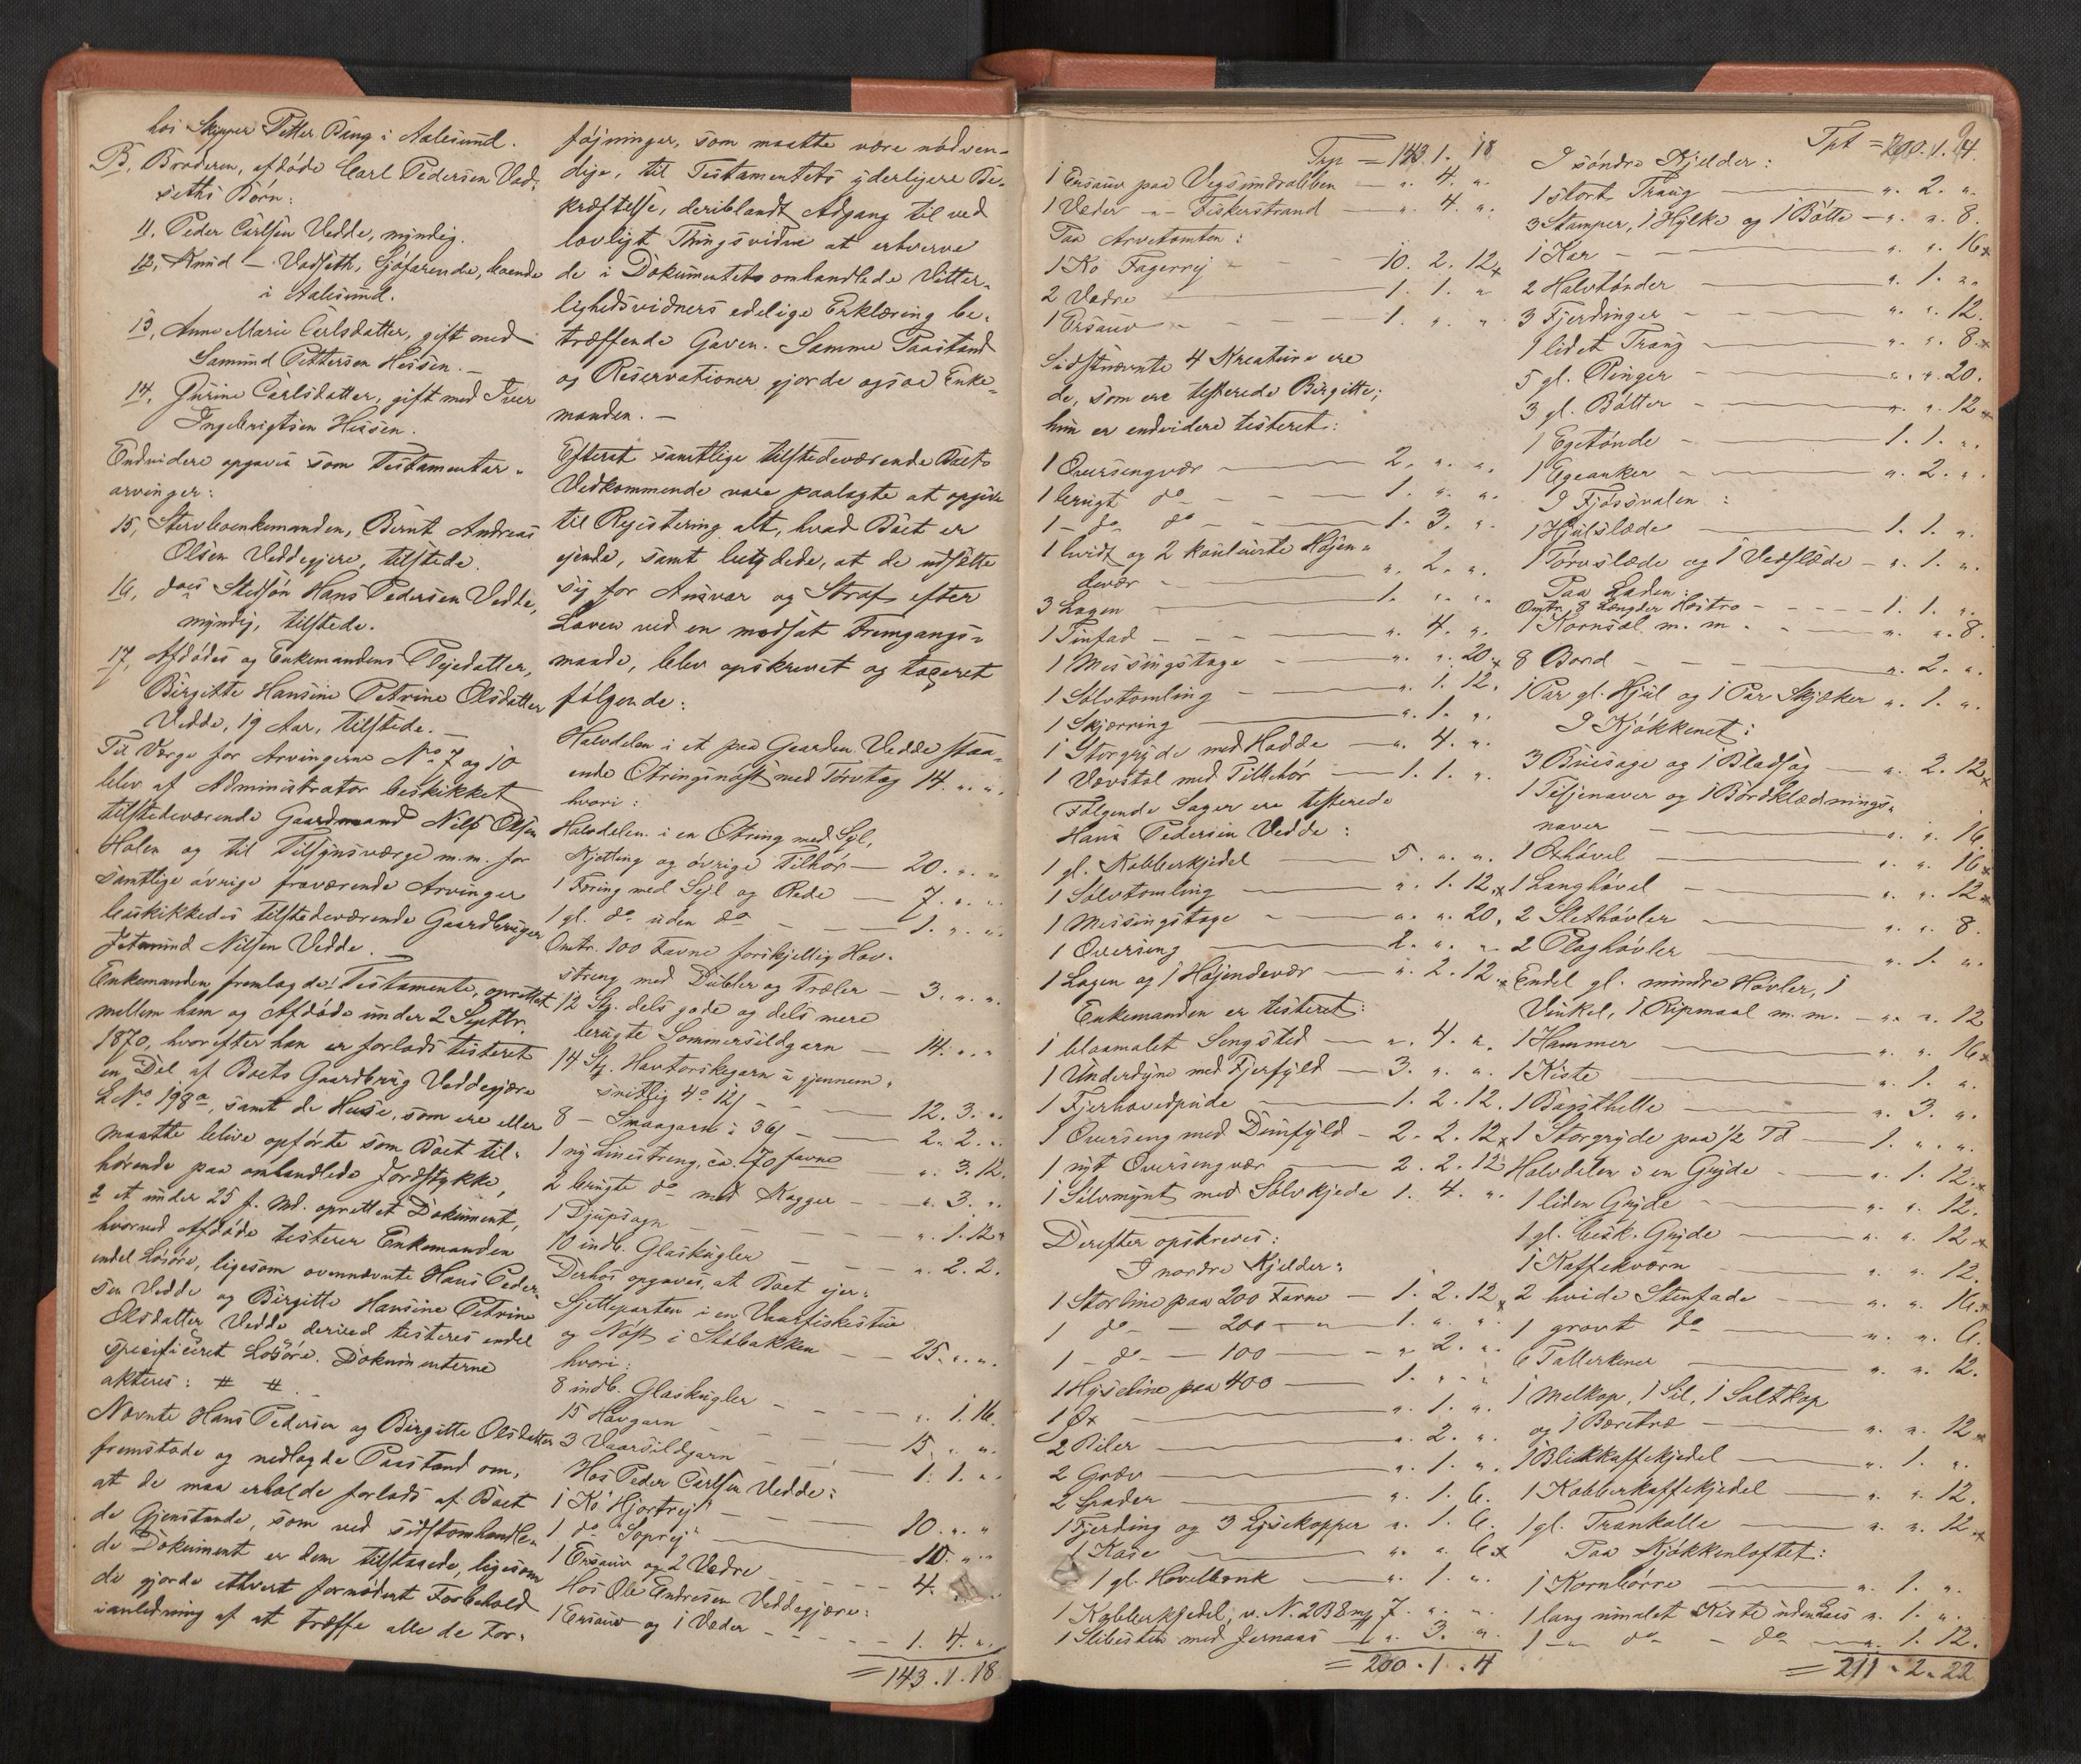 hos Skipper Petter Bang i Aalesund.
B, Broderen, afdøde Carl Pedersen Vad-
seths Børn:
11, Peder Carlsen Vedde, myndig.
12, Knud — Vadseth, Sjøfarende, boende
i Aalesund.
13, Anne Marie Carlsdatter, gift med
Samund Pettersen Hessen. —
14, Gurine Carlsdatter, gift med Iver
Ingebrigtsen Hessen.
Endvidere opgaves som Testamentar-
arvinger:
15, Stervboenkemanden, Bernt Andreas
Olsen Veddegjere, tilstede.
16, dses Stedsøn Hans Pedersen Vedde,
myndig, tilstede.
17, Afdødes og Enkemandens Plejedatter,
Birgitte Hansine Petrine Olsdatter
Vedde, 19 Aar, tilstede. —
Til Værge for Arvingerne No 7 og 10
blev af Administrator beskikket
tilstedeværende Gaardmand Nils Olsen
Holen og til Tilsynsværge m.m. for
samtlige øvrige fraværende Arvinger
beskikkedes tilstedeværende Gaardbruger
Jetmund Nilsen Vedde.
Enkemanden fremlagde: 1 Testamente, oprettet
mellem ham og Afdøde under 2 Septbr.
1870, hvorefter han er forlods testeret
en Del af Boets Gaardbrug Veddegjære
L No 198a, samt de Huse, som ere eller
maatte blive opførte som Boet til-
hørende paa omhandlede Jordstykke,
2 et under 25 f. Md. oprettet Dokument,
hvorved Afdøde testerer Enkemanden
endel Løsøre, ligesom ovennævnte Hans Peder-
sen Vedde og Birgitte Hansine Petrine
Olsdatter Vedde derved testeres endel
specificeret Løsøre. Dokumenterne
akteres: # #
Nævnte Hans Pedersen og Birgitte Olsdatter
fremstode og nedlagde Paastand om,
at de maa erholde forlods af Boet
de Gjenstande, som ved sidstomhandle-
de Dokument er dem tilsagede, ligesom
de gjorde ethvert fornødent Forbehold
i anledning af at træffe alle de For-
føjninger, som maatte være nødven-
dige, til Testamentets yderligere Be-
kræftelse, deriblandt Adgang til ved
lovligt Thingsvidne at erhverve
de i Dokumentets omhandlede Vitter-
lighedsvidners edelige Erklæring be-
træffende Gaven. Samme Paastand
og Reservationer gjorde ogsaa Enke-
manden. —
Efterat samtlige tilstedeværende Boets
Vedkommende vare paalagte at opgive
til Registering alt, hvad Boet er
ejende, samt betydede, at de udsatte
sig for Ansvar og Straf efter
Loven ved en modsat Fremgangs-
maade, blev opskrevet og taxeret
følgende:
Halvdelen i et paa Gaarden Vedde staa-
ende Otringsnøst med Torvtag 14. " "
hvori:
Halvdelen i en Otring med Sejl,
Kjetting og øvrige Tilhør — 20. " "
1 Færing med Sejl og Rade — 7. " "
1 gl. do uden do — 1. " "
Omtr. 100 Favne forskjellig Hav-
streng med Dubler og Træler — 3. " "
12 Stk. dels gode og dels mere
brugte Sommersildgarn — 14. " "
14 Stk. Havtorskegarn a gjennem-
snitlig 4o 12s — 12. 3. "
8 — Smaagarn a 36s — 2. 2. "
1 ny Linestreng, ca. 70 favne — " 3. 12.
2 brugte do med Kagger — " 3. "
1 Djupsagn — " 1. 12
10 indb. Glaskugler — " 2. 2.
Derhos opgaves, at Boet ejer
Sjetteparten i en Vaarfiskestue
og Nøst i Stobakken — 25. " "
hvori:
8 indb. Glaskugler — " 1. 16.
15 Havgarn — 15. " "
3 Vaarsildgarn — 1. 1. "
Hos Peder Carlsen Vedde:
1 Ko "Hjortrej" — 10. " "
1 do "Soprej" — 10. " "
1 Ersau og 2 Vædre — 4.
Hos Ole Andresen Veddegjære:
1 Ersau og 1 Væder — 1. 4. "
= 143. 1. 18
Trp = 143. 1. 18
1 Ersau paa Vegsundvalben — " 4. "
1 Væder " Fiskerstrand — " 4. "
Paa Arvetomten:
1 Ko Fagerrej — 10. 2. 12
2 Vædre — 1. 1. "
1 Ersau — 1. " "
Sidstnævnte 4 Kreature ere
de, som ere testerede Birgitte;
hun er endvidere testeret:
1 Oversengvær — 2. " "
1 brugt do — 1. " "
1 — do do — 1. 3. "
1 hvidt og 2 kouleurte Højen-
devær — " 2. "
3 Lagen — 1. " "
1 Tinfad — " 4. "
1 Messingstage — " " 20
1 Sølvtomling — " 1. 12.
1 Skjærring — " 1. "
1 Storgryde med Hadde — " 4. "
1 Vævstol med Tilbehør — 1. 1. "
Følgende Sager ere testerede
Hans Pedersen Vedde:
1 gl. Kobberkjedel — 5. " "
1 Sølvtomling — " 1. 12
1 Messingstage — " " 20.
1 Overseng — 2. " "
1 Lagen og 1 Højendevær — " 2. 12
Enkemanden er testeret:
1 blaamalet Sengsted — " 4. "
1 Underdyne med Fjerfyld — 3. " "
1 Fjerhovedpude — 1. 2. 12.
1 Overseng med Dunfyld — 2. 2. 12
1 nyt Oversengvær — 2. 2. 12
1 Sølvmynt med Sølvkjede 1. 4. "
Derefter opskreves:
I nordre Kjelder:
1 Storline paa 200 Favne — 1. 2. 12
1 do — 200 — " 1. " "
1 — do — 100 — " 2. "
1 Hyseline paa 400 — 1. " "
1 Øx — " 1. "
2 Biler — " 2. "
2 Græv — " 1. "
2 Spader — " 1. 6.
1 Fjerding og 3 Lysekopper " 1. 6.
1 Kase — " " 6
1 gl. Høvelbænk — " 1. "
1 Kobberkjedel, v. N. 2B 8mk 7. " "
1 Slibesten med Jernaas — " 3. "
= 200. 1. 4
Tpt = 200. 1. 4.
I søndre Kjelder:
1 stort Traug — " 2. "
3 Stamper, 1 Hylke og 1 Bøtte — " " 8.
1 Kar — " " 16
2 Halvtønder — " 1. "
3 Fjerdinger — " " 12.
1 lidet Traug — " " 8.
5 gl. Ringer — " " 20.
3 gl. Bøtter — " " 12
1 Egetønde — 1. 1. "
1 Egeanker — " 2. "
I Fjøssvalen:
1 Hjulslæde — 1. 1. "
1 Tørvslæde og 1 Vedslæde — " 1. "
Paa Laden:
Omtr. 8 Længder Høstro — 1. 1. "
1 Kornsæl m. m. — " " 8.
8 Bord — " 2. "
1 Par gl. Hjul og 1 Par Skjæker " 1. "
I Kjøkkenet:
3 Buesage og 1 Bladsag — " 2. 12
1 Tiljenaver og 1 Bordklædnings-
naver — " " 16
1 Oxhøvel — " " 16
1 Langhøvel — " " 12
2 Slethøvler — " " 8.
2 Ploghøvler — " 1. "
Endel gl. mindre Høvler, 1
Vinkel, 1 Ripmaal m. m. — " " 12
1 Hammer — " " 16
1 Kiste — " 1. "
1 Bagsthelle — " 3. "
1 Storgryde paa 1/2 Td — 1. " "
Halvdelen i en Gryde — " 1. 12.
1 liden Gryde — " " 12.
1 gl. besk. Gryde — " " 12
1 Kaffekværn — " " 12.
2 hvide Stenfade — " " 16
1 grovt do — " " 6.
6 Tallerkener — " " 12.
1 Melkop, 1 Sil, 1 Saltkop
og 1 Bæretræ — " " 12
1 Blikkaffekjedel — " 1. "
1 Kobberkaffekjedel — " " 12.
1 gl. Trankolle — " " 12
Paa Kjøkkenloftet:
1 Kornbørre — " 1. "
1 lang umalet Kiste uden Laas " 1. "
1 — " do — do — " 1. 12.
= 211. 2. 22